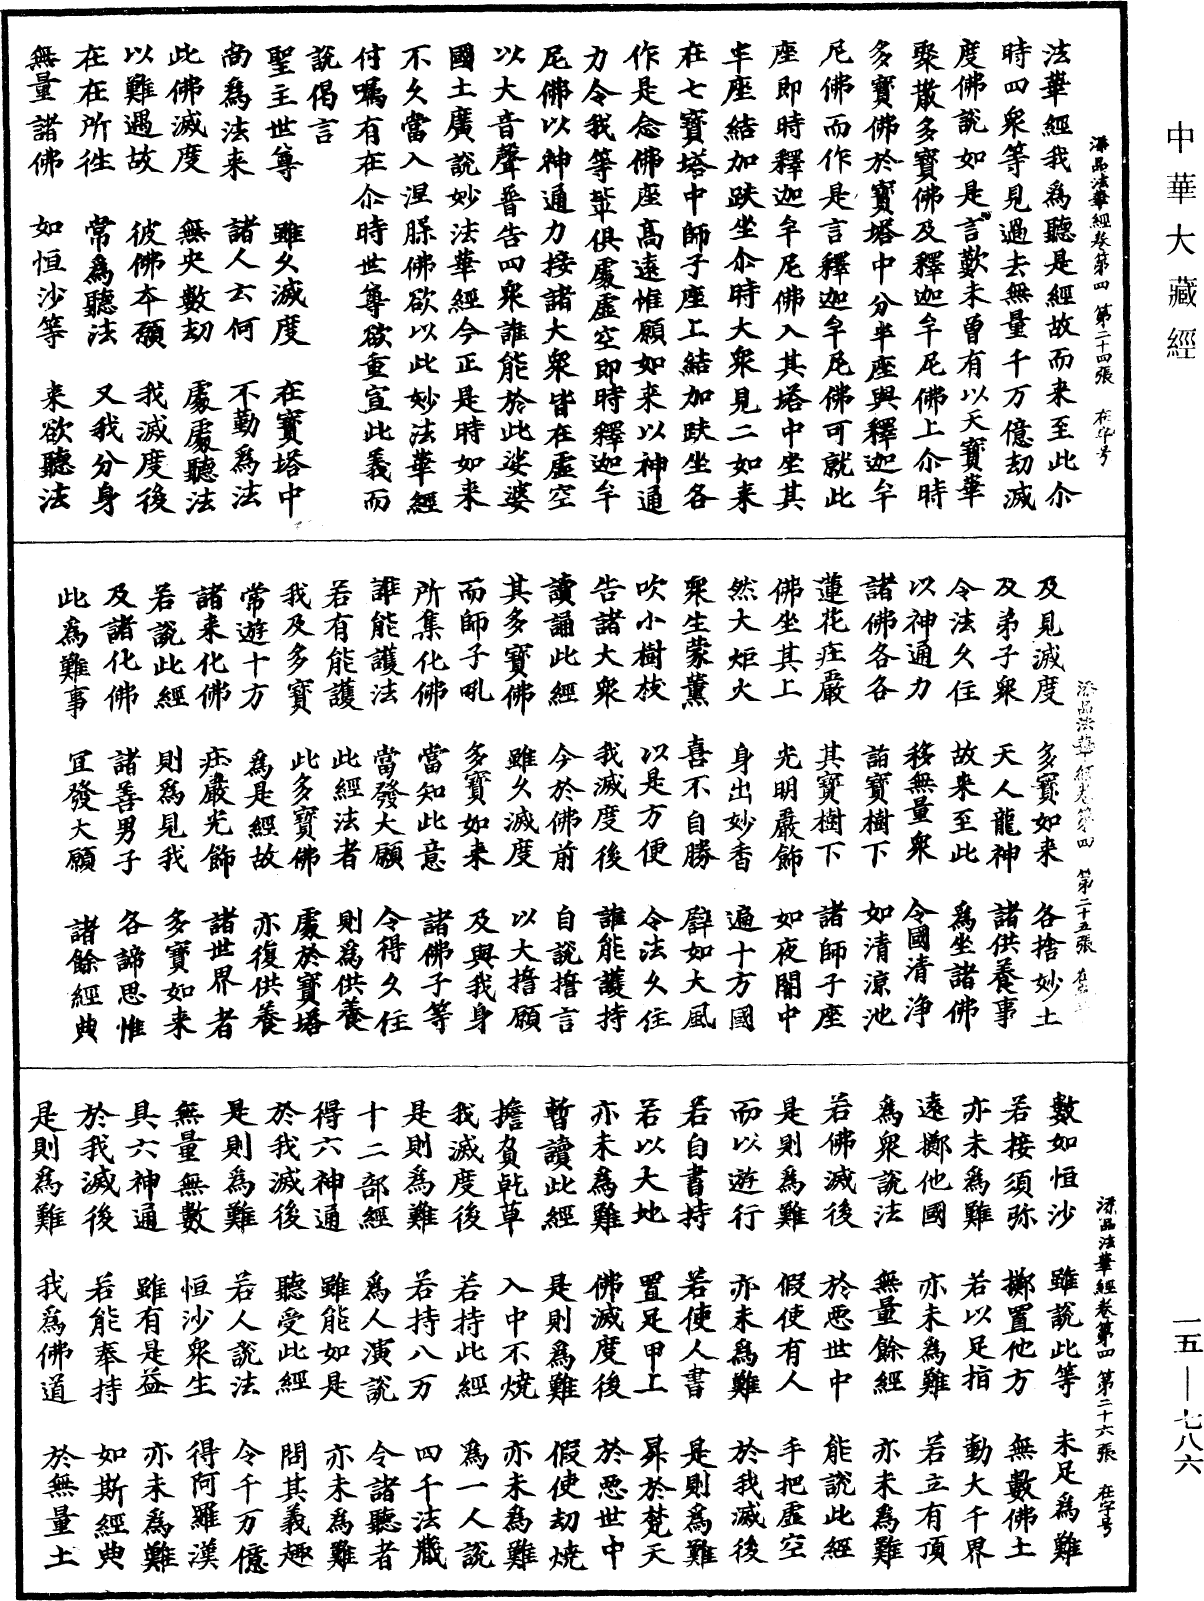 中華大藏經
添品法華經卷第四　第二十四張　在字号
法華經我爲聽是經故而来至此尒
時四衆等見過去無量千万億劫滅
度佛說如是言歎未曾有以天寶華
聚散多寶佛及釋迦牟尼佛上尒時
多寶佛於寶塔中分半座與釋迦牟
尼佛而作是言釋迦牟尼佛可就此
座即時釋迦牟尼佛入其塔中坐其
半座結加趺坐尒時大衆見二如来
在七寶塔中師子座上結加趺坐各
作是念佛座高遠惟願如来以神通
力令我等輩俱處虛空即時釋迦牟
尼佛以神通力接諸大衆皆在虛空
以大音聲普告四衆誰能於此娑婆
國土廣說妙法華經今正是時如来
不久當入涅槃佛欲以此妙法華經
付囑有在尒時世尊欲重宣此義而
說偈言
聖主世尊　雖久滅度　在寶塔中
尚爲法来　諸人云何　不勤爲法
此佛滅度　無央數劫　處處聽法
以難遇故　彼佛本願　我滅度後
在在所往　常爲聽法　又我分身
無量諸佛　如恒沙等　来欲聽法
添品法華經卷第四　第二十五張　在
及見滅度　多寶如来　各捨妙土
及弟子衆　天人龍神　諸供養事
令法久住　故来至此　爲坐諸佛
以神通力　移無量衆　令國清淨
諸佛各各　詣寶樹下　如清涼池
蓮花莊嚴　其寶樹下　諸師子座
佛坐其上　光明嚴飾　如夜闇中
然大炬火　身出妙香　遍十方國
衆生蒙薰　喜不自勝　譬如大風
吹小樹枝　以是方便　令法久住
告諸大衆　我滅度後　誰能護持
讀誦此經　今於佛前　自說誓言
其多寶佛　雖久滅度　以大誓願
而師子吼　多寶如来　及與我身
所集化佛　當知此意　諸佛子等
誰能護法　當發大願　令得久住
若有能護　此經法者　則爲供養
我及多寶　此多寶佛　處於寶塔
常遊十方　爲是經故　亦復供養
諸来化佛　莊嚴光飾　諸世界者
若說此經　則爲見我　多寶如来
及諸化佛　諸善男子　各諦思惟
此爲難事　宜發大願　諸餘經典
添品法華經卷第四　第二十六張　在字号
數如恒沙　雖說此等　未足爲難
若接須弥　擲置他方　無數佛土
亦未爲難　若以足指　動大千界
遠擲他國　亦未爲難　若立有頂
爲衆說法　無量餘經　亦未爲難
若佛滅後　於惡世中　能說此經
是則爲難　假使有人　手把虛空
而以遊行　亦未爲難　於我滅後
若自書持　若使人書　是則爲難
若以大地　置足甲上　昇於梵天
亦未爲難　佛滅度後　於惡世中
暫讀此經　是則爲難　假使劫燒
擔負乾草　入中不燒　亦未爲難
我滅度後　若持此經　爲一人說
是則爲難　若持八万　四千法藏
十二部經　爲人演說　令諸聽者
得六神通　雖能如是　亦未爲難
於我滅後　聽受此經　問其義趣
是則爲難　若人說法　令千万億
無量無數　恒沙衆生　得阿羅漢
具六神通　雖有是益　亦未爲難
於我滅後　若能奉持　如斯經典
是則爲難　我爲佛道　於無量土
一五—七八六